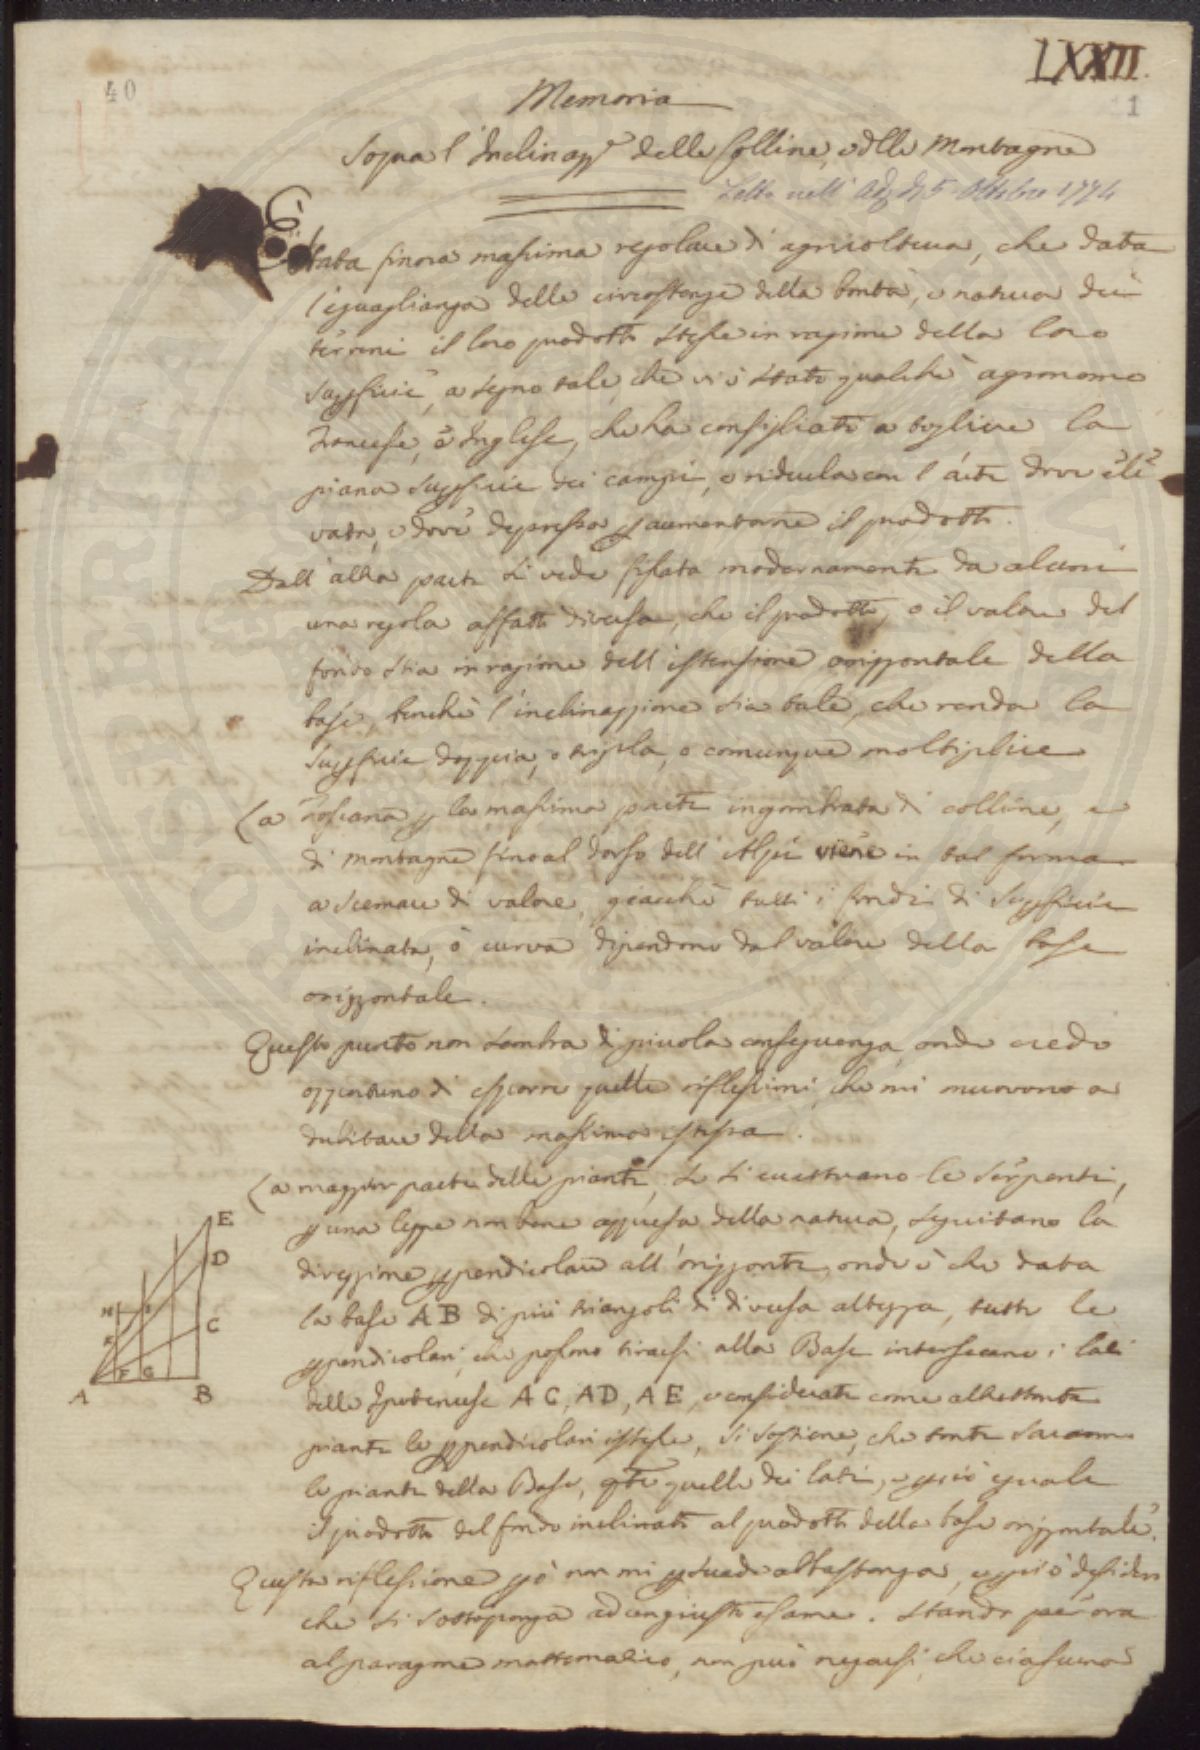 LXXII.
40
1
Memoria
Sopra l'Inclinazze delle Colline, e delle Montagne
Letta nell' Adza di 5 Ottobre 1774
È stata finora massima regolare di agricoltura, che data
l'eguaglianza delle circostanze della bontà, e natura dei
terreni il loro prodotto stesse in ragione della loro
superficie, a segno tale, che vi è stato qualche agronomo
Francese, o Inglese, che ha consigliato a togliere la
piana superficie dei campi, e ridurla con l'arte dove ele
vata, e dove depressa p aumentarne il prodotto.
Dall'altra parte si vede fissata modernamente da alcuni
una regola affatto diversa, che il prodotto, o il valore del
fondo stia in ragione dell'estensione orizzontale della
base, benchè l'inclinazzione sia tale, che renda la
superficie doppia, o tripla, o comunque moltiplice
La Toscana p la massima parte ingombrata di colline, e
di montagne fino al dorso dell'Alpi viene in tal forma
a scemare di valore, giacchè tutti i fondi di superficie
inclinata, o curva dipendono dal valore della base
orizzontale.
Questo punto non sembra di piccola conseguenza, onde credo
opportuno di esporre quelle riflessioni, che mi muovono a
dubitare della massima istessa.
La maggior parte delle piante, se si eccettuano le serpenti,
p una legge non bene appresa della natura, seguitano la
direzzione ppendicolare all'orizzonte, onde è che data
la base AB di più triangoli di diversa altezza, tutte le
ppendicolari, che possono tirarsi alla Base intersecano i lati
delle Ipotenuse AC, AD, AE, e considerate come altrettante
piante le ppendicolari istesse, si sostiene, che tante saranno
le piante della Base, qte quelle dei lati, e pciò eguale
il prodotto del fondo inclinato al prodotto della base orizzontale.
Questa riflessione pò non mi psuade abbastanza, e pciò desidero
che si sottoponga ad un giusto esame. Stando per ora
al paragone mattematico, non può negarsi, che ciascuna
E
D
H
I
K
C
F G
A
B